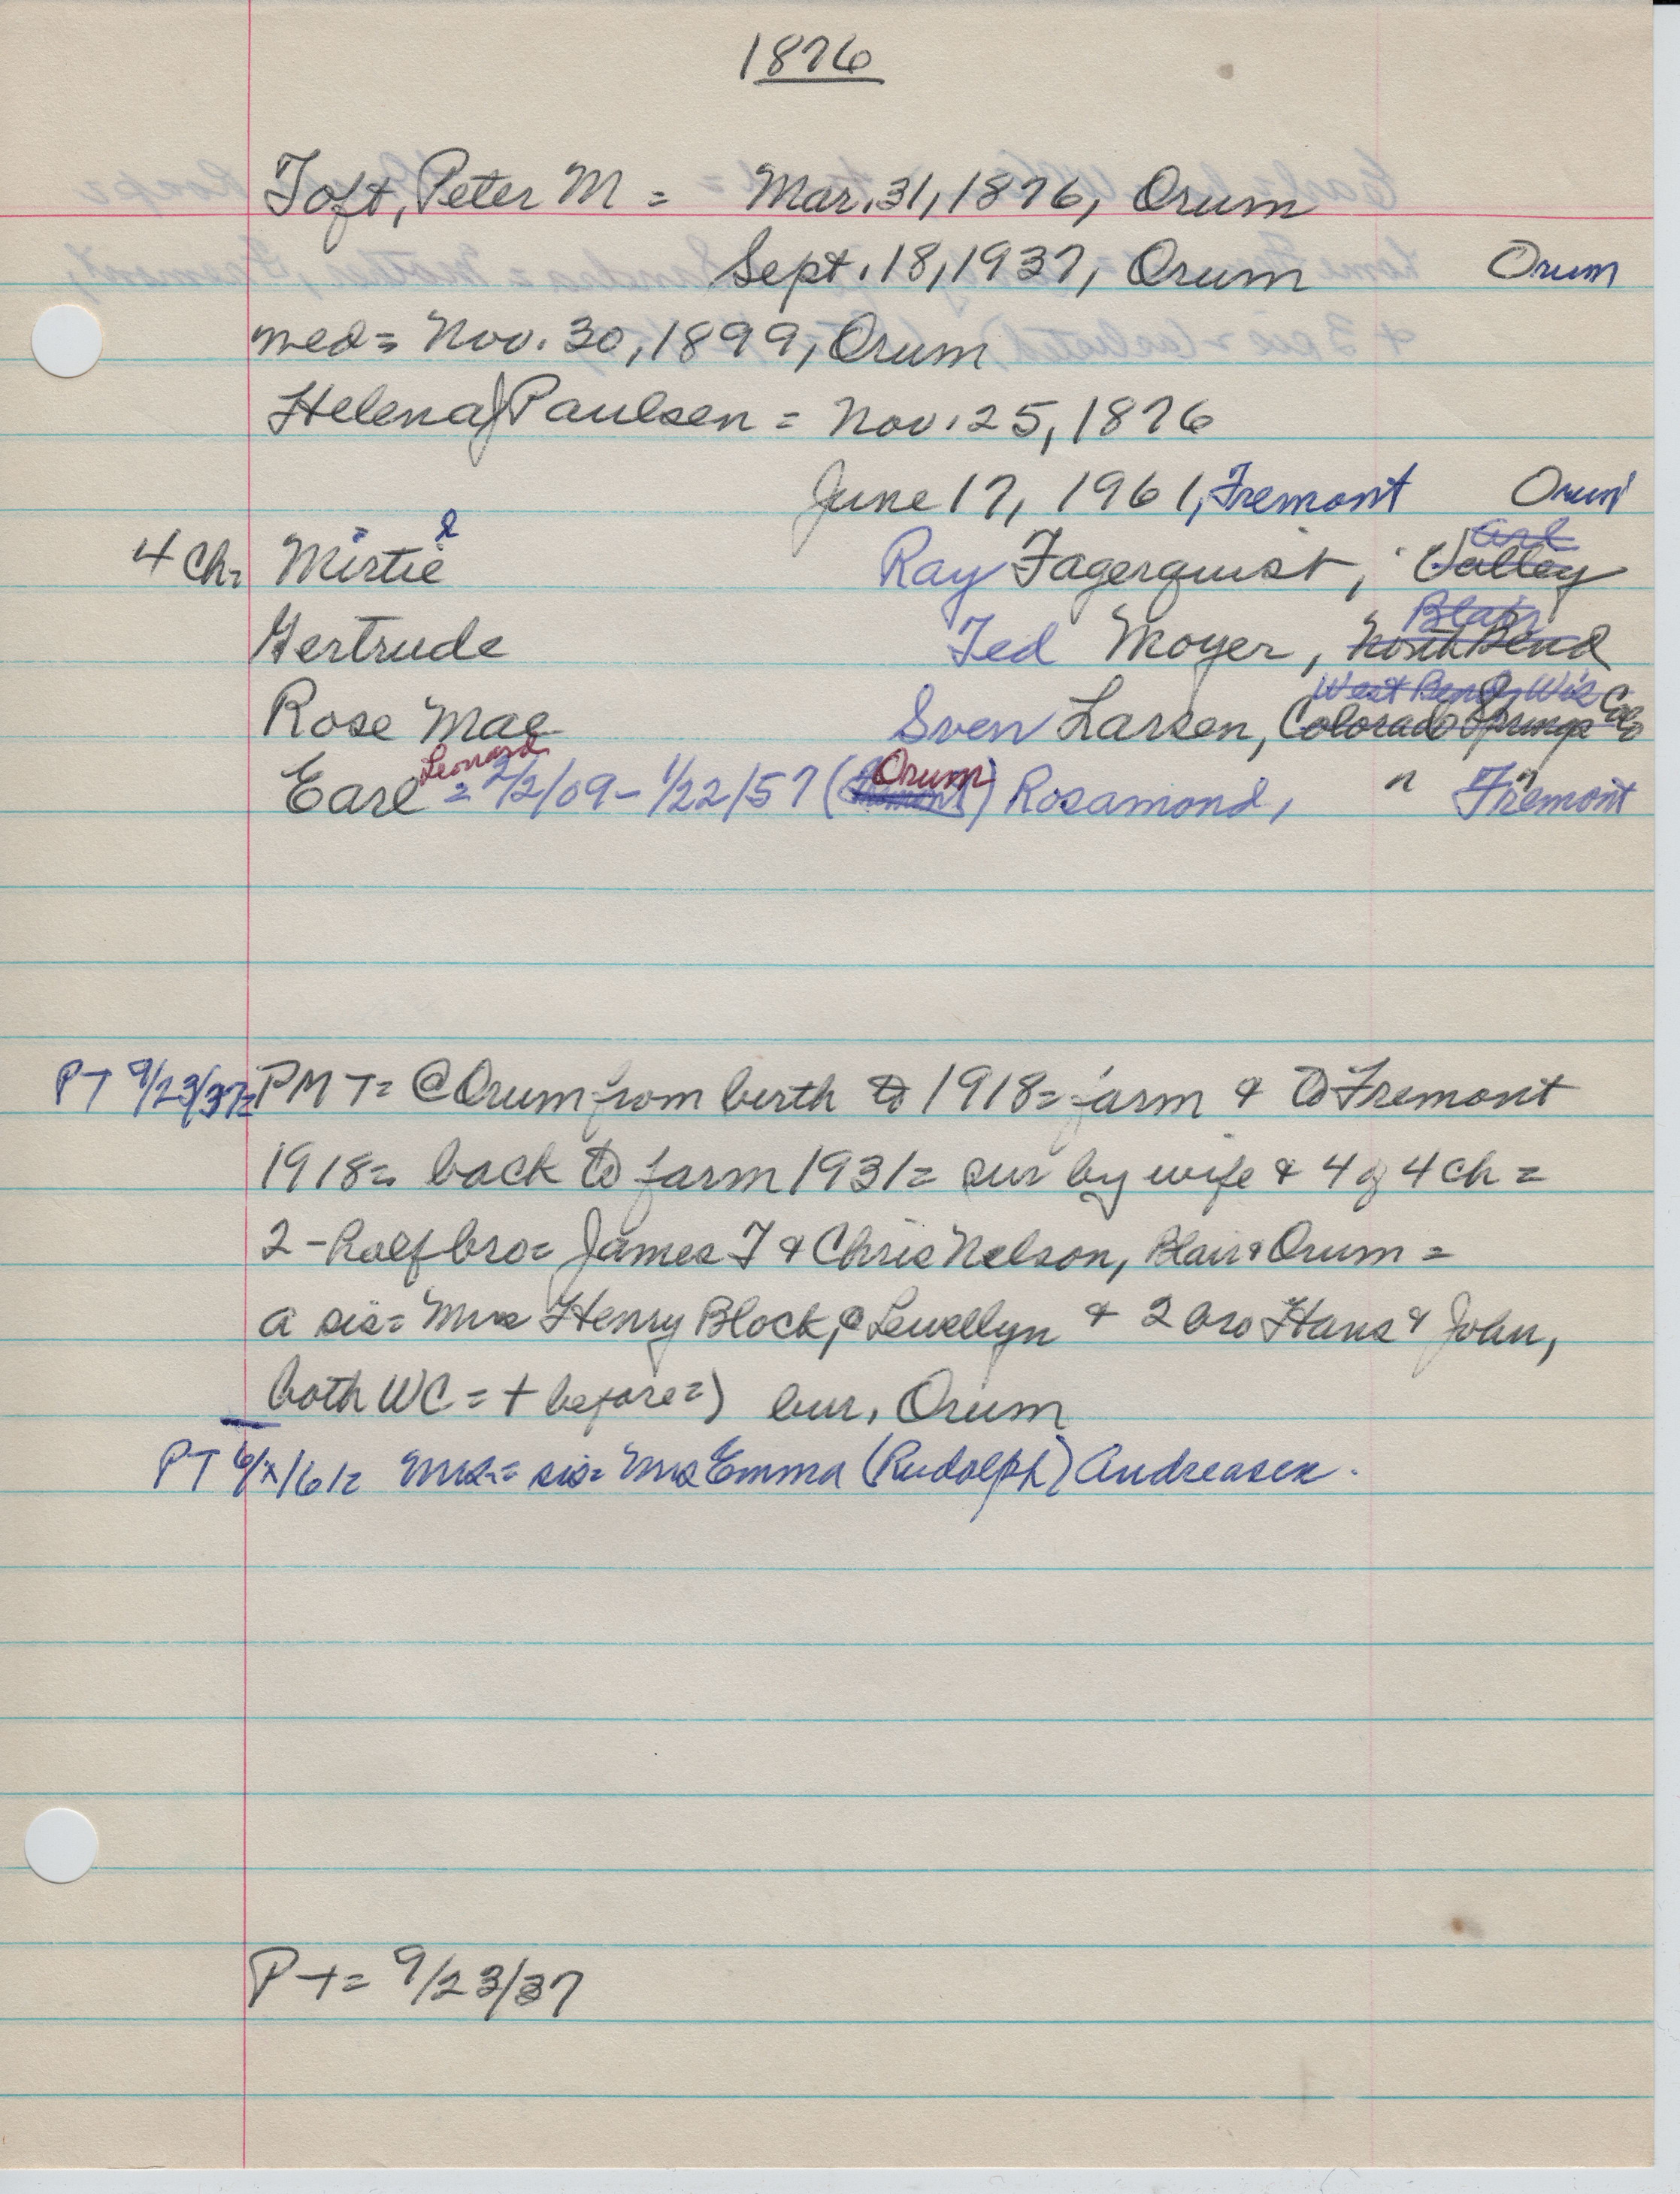 1876
Toft, Peter M = Mar. 31, 1876, Orum
Sept. 18, 1937, Orum Orum
med = Nov. 30, 1899, Orum
Helena J Paulsen = Nov. 25, 1876
June 17, 1961, Fremont Orum
l Arl
4 Ch = Mirtie Ray Fagerquist, Valley
Blair
Gertrude Ted Moyer, North Bend
West Bend, Wis
Rose Mae Sven Larsen, Colorado Springs Colo
Leonard Orum
Earl = 2/2/09 - 1/22/57 ( ) Rosamond, " Fremont
PT 9/23/37 = PMT = @ Orum from birth to 1918 = farm & to Fremont
1918 = back to farm 1931 = sur by wife & 4 of 4 ch =
2 - half bro = James T & Chris Nelson, Blair & Orum =
a sis = Mrs Henry Block, @ Lewellyn & 2 bro Hans & John,
both WC = + before =) bur. Orum
PT 6/x/61 = Mrs = sis = Mrs Emma (Rudolph) Andreasen.
PT = 9/23/37